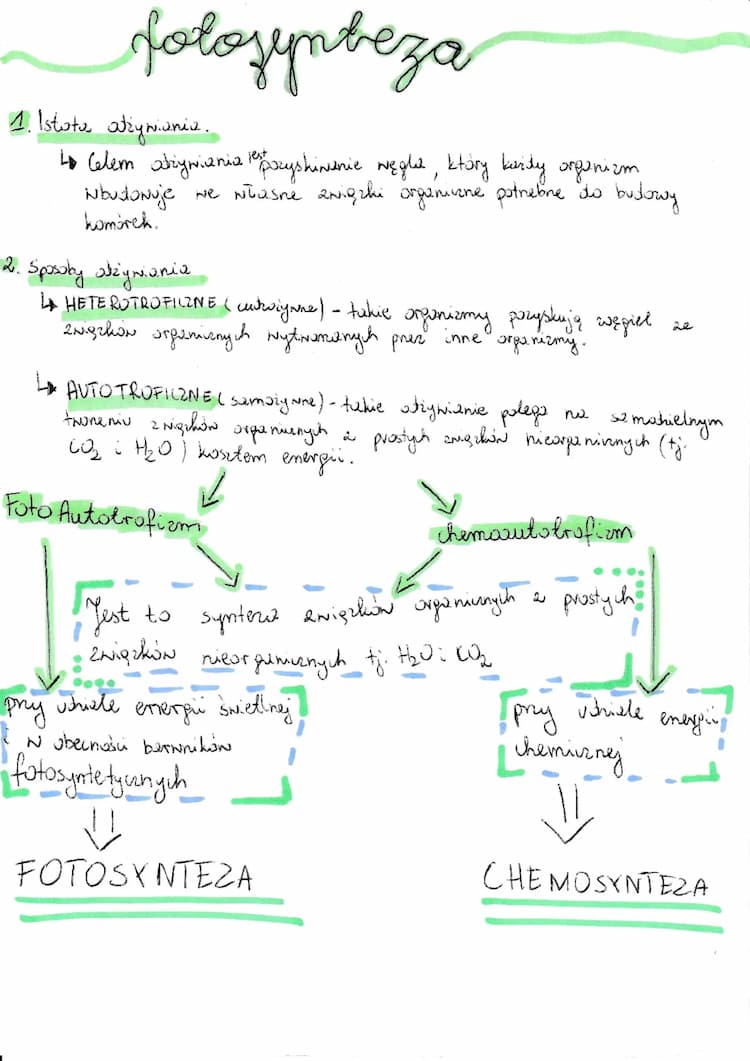 fotosynteza
1. Istota odżywiania.
↳ Celem odżywiania jest pozyskiwanie węgla, który każdy organizm
wbudowuje we własne związki organiczne potrzebne do budowy
komórek.
2. Sposoby odżywiania
↳ HETEROTROFICZNE (cudzożywne) - takie organizmy pozyskują węgiel ze
związków organicznych wytwarzanych przez inne organizmy.
↳ AUTOTROFICZNE (samożywne) - takie odżywianie polega na samodzielnym
tworzeniu związków organicznych z prostych związków nieorganicznych (tj.
CO2 i H2O) kosztem energii.
FotoAutotrofizm
chemoautotrofizm
Jest to synteza związków organicznych z prostych
związków nieorganicznych tj. H2O i CO2
przy udziale energii świetlnej
i w obecności barwników
fotosyntetycznych
przy udziale energii
chemicznej
FOTOSYNTEZA
CHEMOSYNTEZA